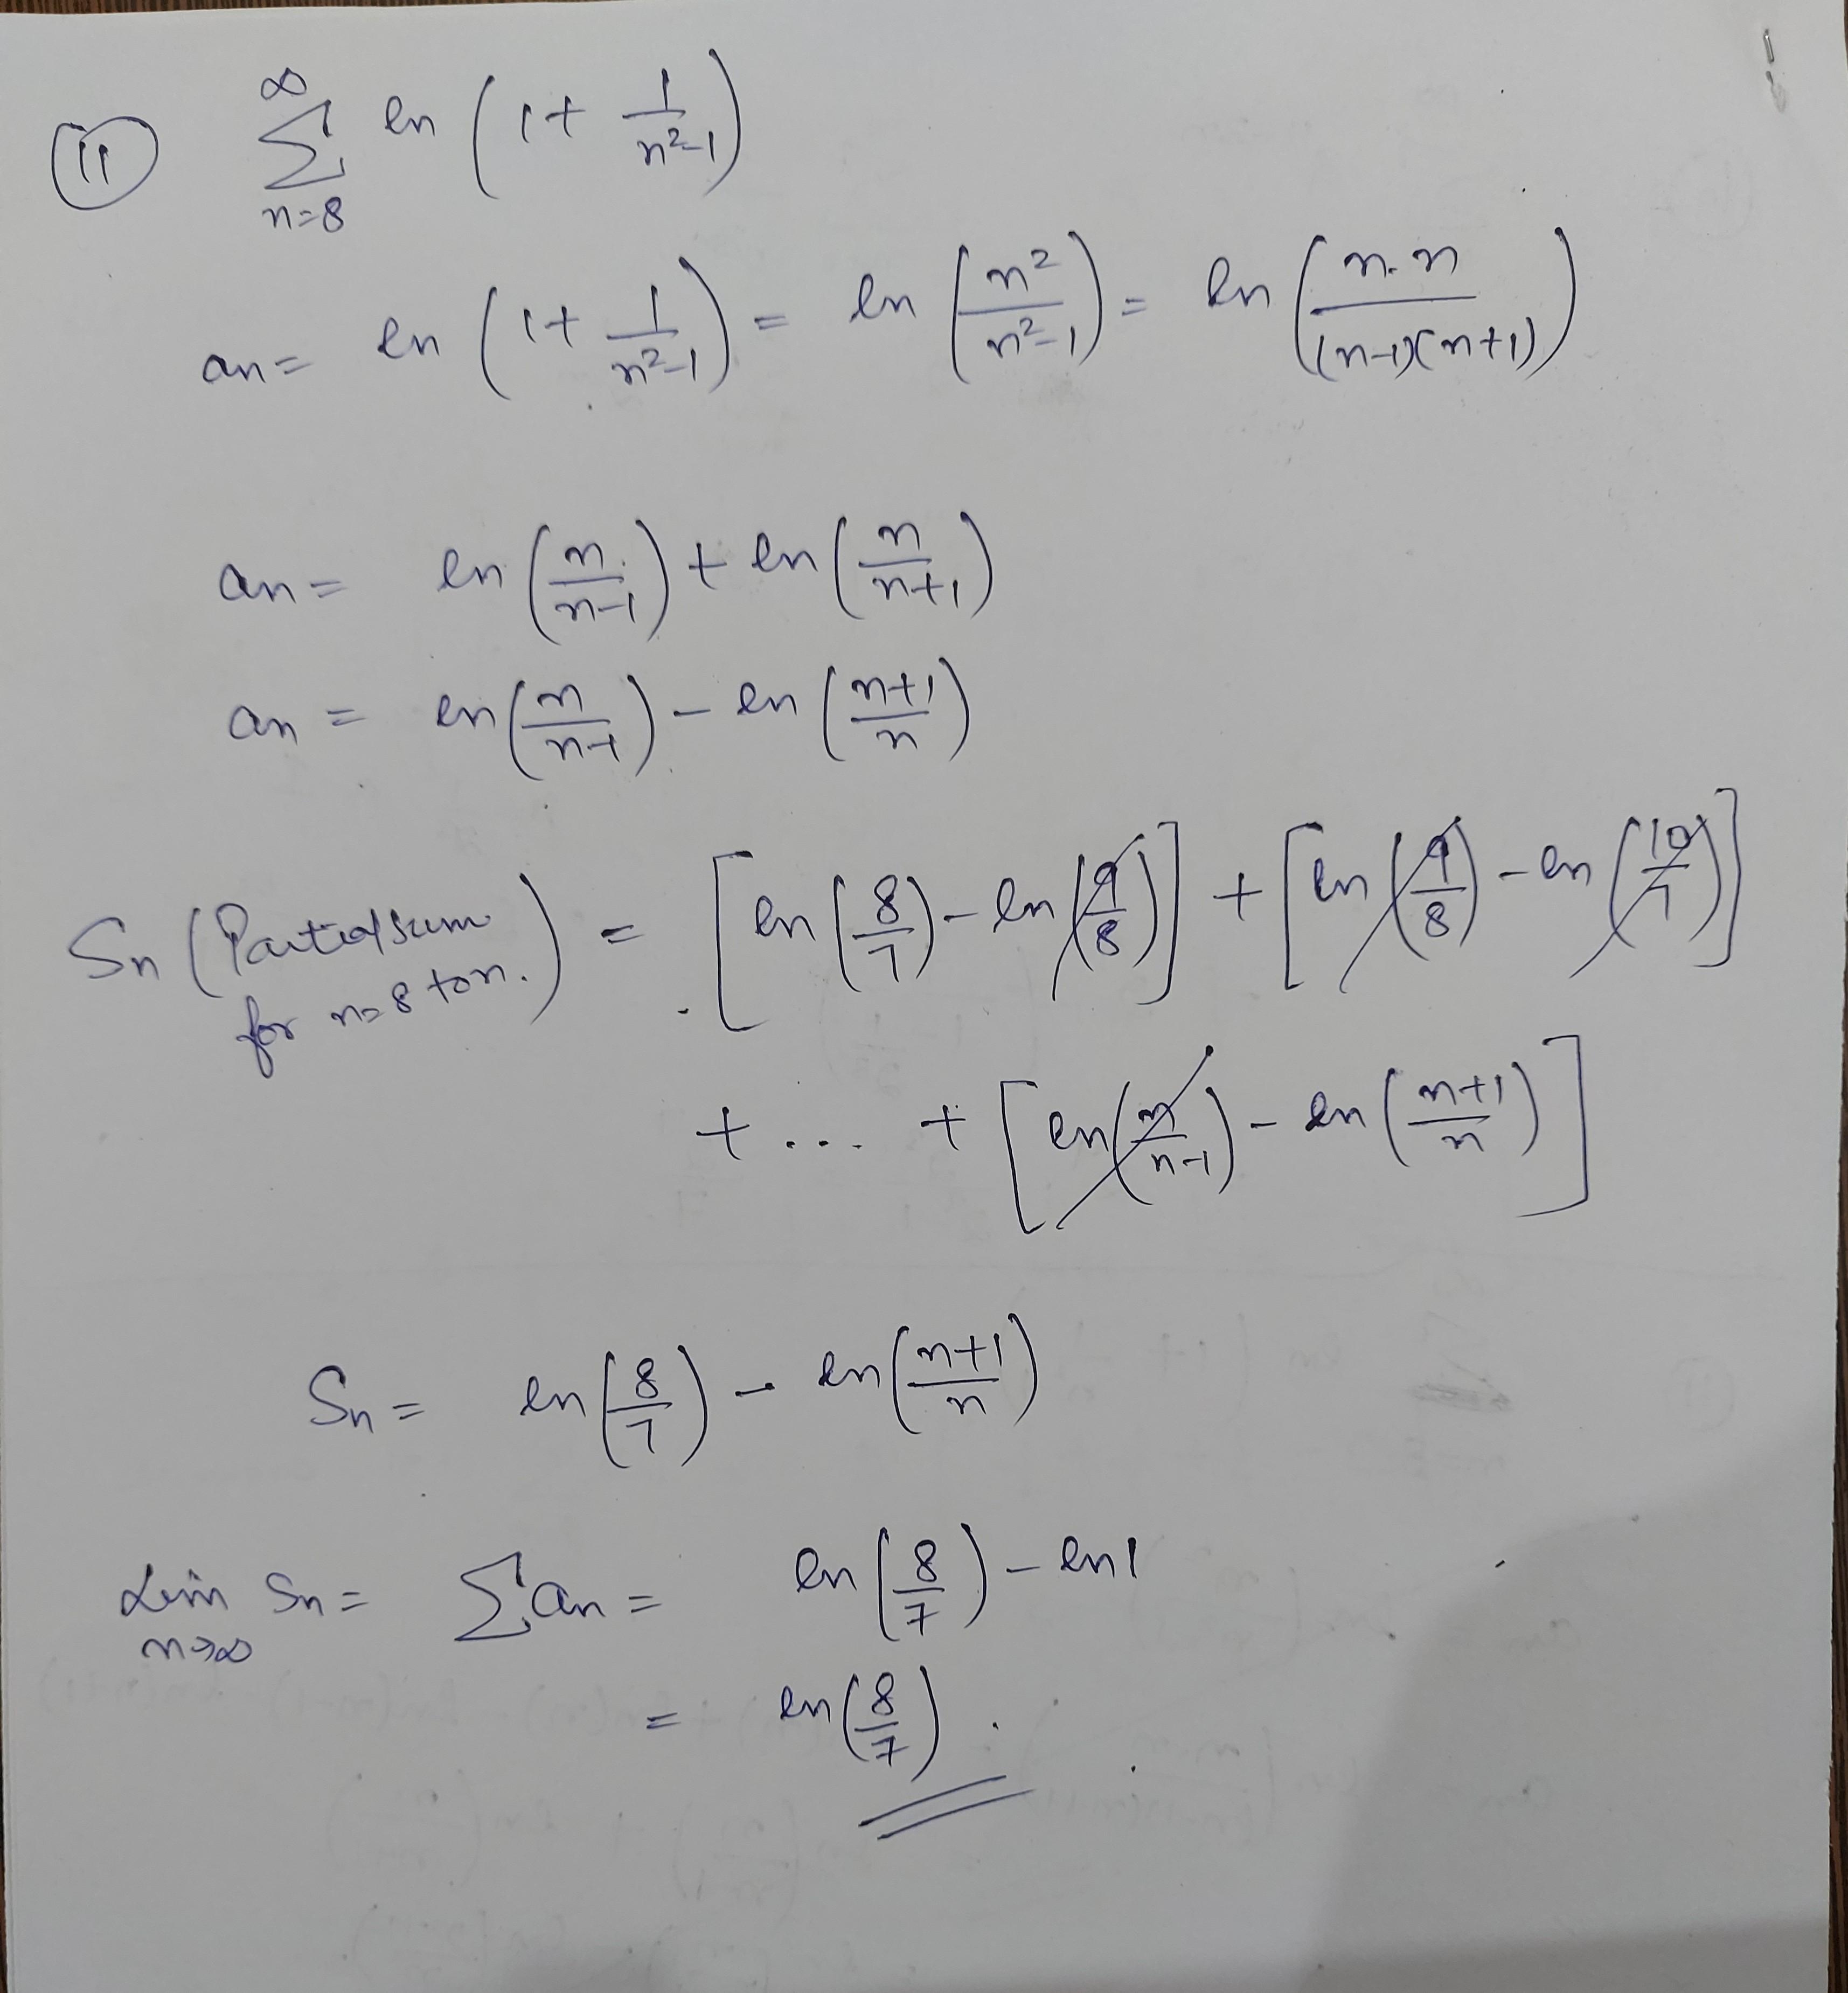 (11) ∞∑n=8 ln (1 + 1/(n²-1))
an = ln (1 + 1/(n²-1)) = ln (n²/(n²-1)) = ln (n·n/((n-1)(n+1)))
an = ln (n/(n-1)) + ln (n/(n+1))
an = ln (n/(n-1)) - ln ((n+1)/n)
Sn (Partial sum for n=8 to n.) = [ln (8/7) - ln (9/8)] + [ln (9/8) - ln (10/9)]
+ ... + [ln (n/(n-1)) - ln ((n+1)/n)]
Sn = ln (8/7) - ln ((n+1)/n)
Lim n→∞ Sn = ∑an = ln (8/7) - ln 1
= ln (8/7).